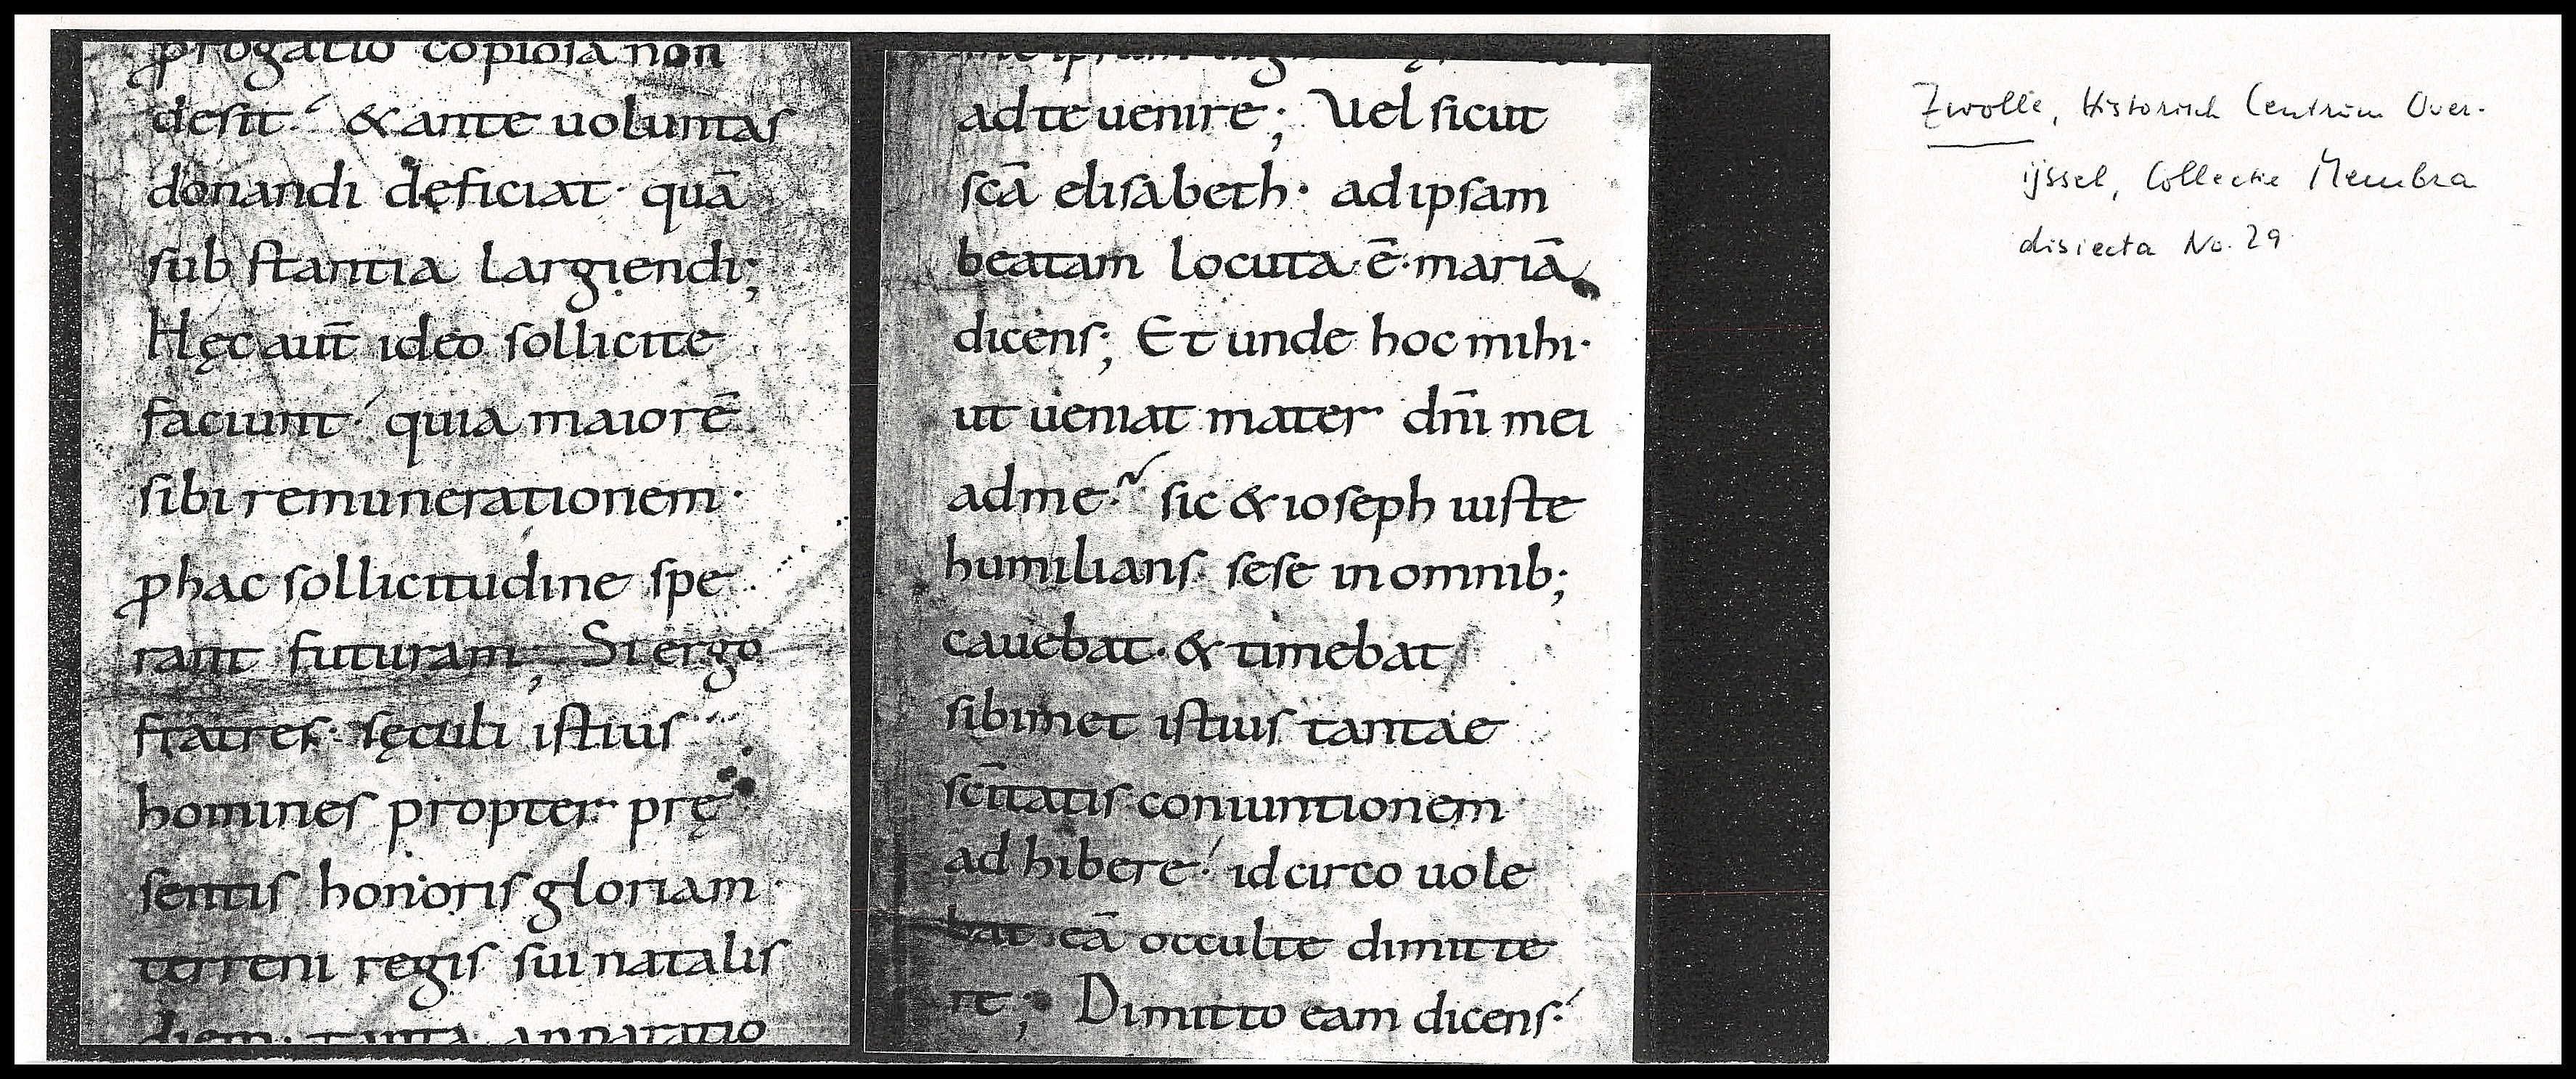 progatio copiosa non
desit· & ante uoluntas
donandi deficiat· quā
substantia largiendi;
Hęc aut̄ ideo sollicite
faciunt· quia maiorē
sibi remunerationem·
ꝑ hac sollicitudine spe
rant futuram; Si ergo
fratres· sęculi istius
homines propter prę
sentis honoris gloriam
terreni regis sui natalis
diem· tanta apparatio
ad te uenire; Uel sicut
sc̄ā elisabeth· ad ipsam
beatam locuta ē· mariā
dicens; Et unde hoc mihi·
ut ueniat mater dn̄i mei
ad me· sic & ioseph iuste
humilians sese in omnib;
cauebat· & timebat
sibimet istius tantae
sc̄itatis coniuntionem
adhibere· idcirco uole
bat eā occulte dimitte
re; Dimitto eam dicens·
Zwolle, Historisch Centrum Over-
ijssel, Collectie Membra
disiecta No. 29